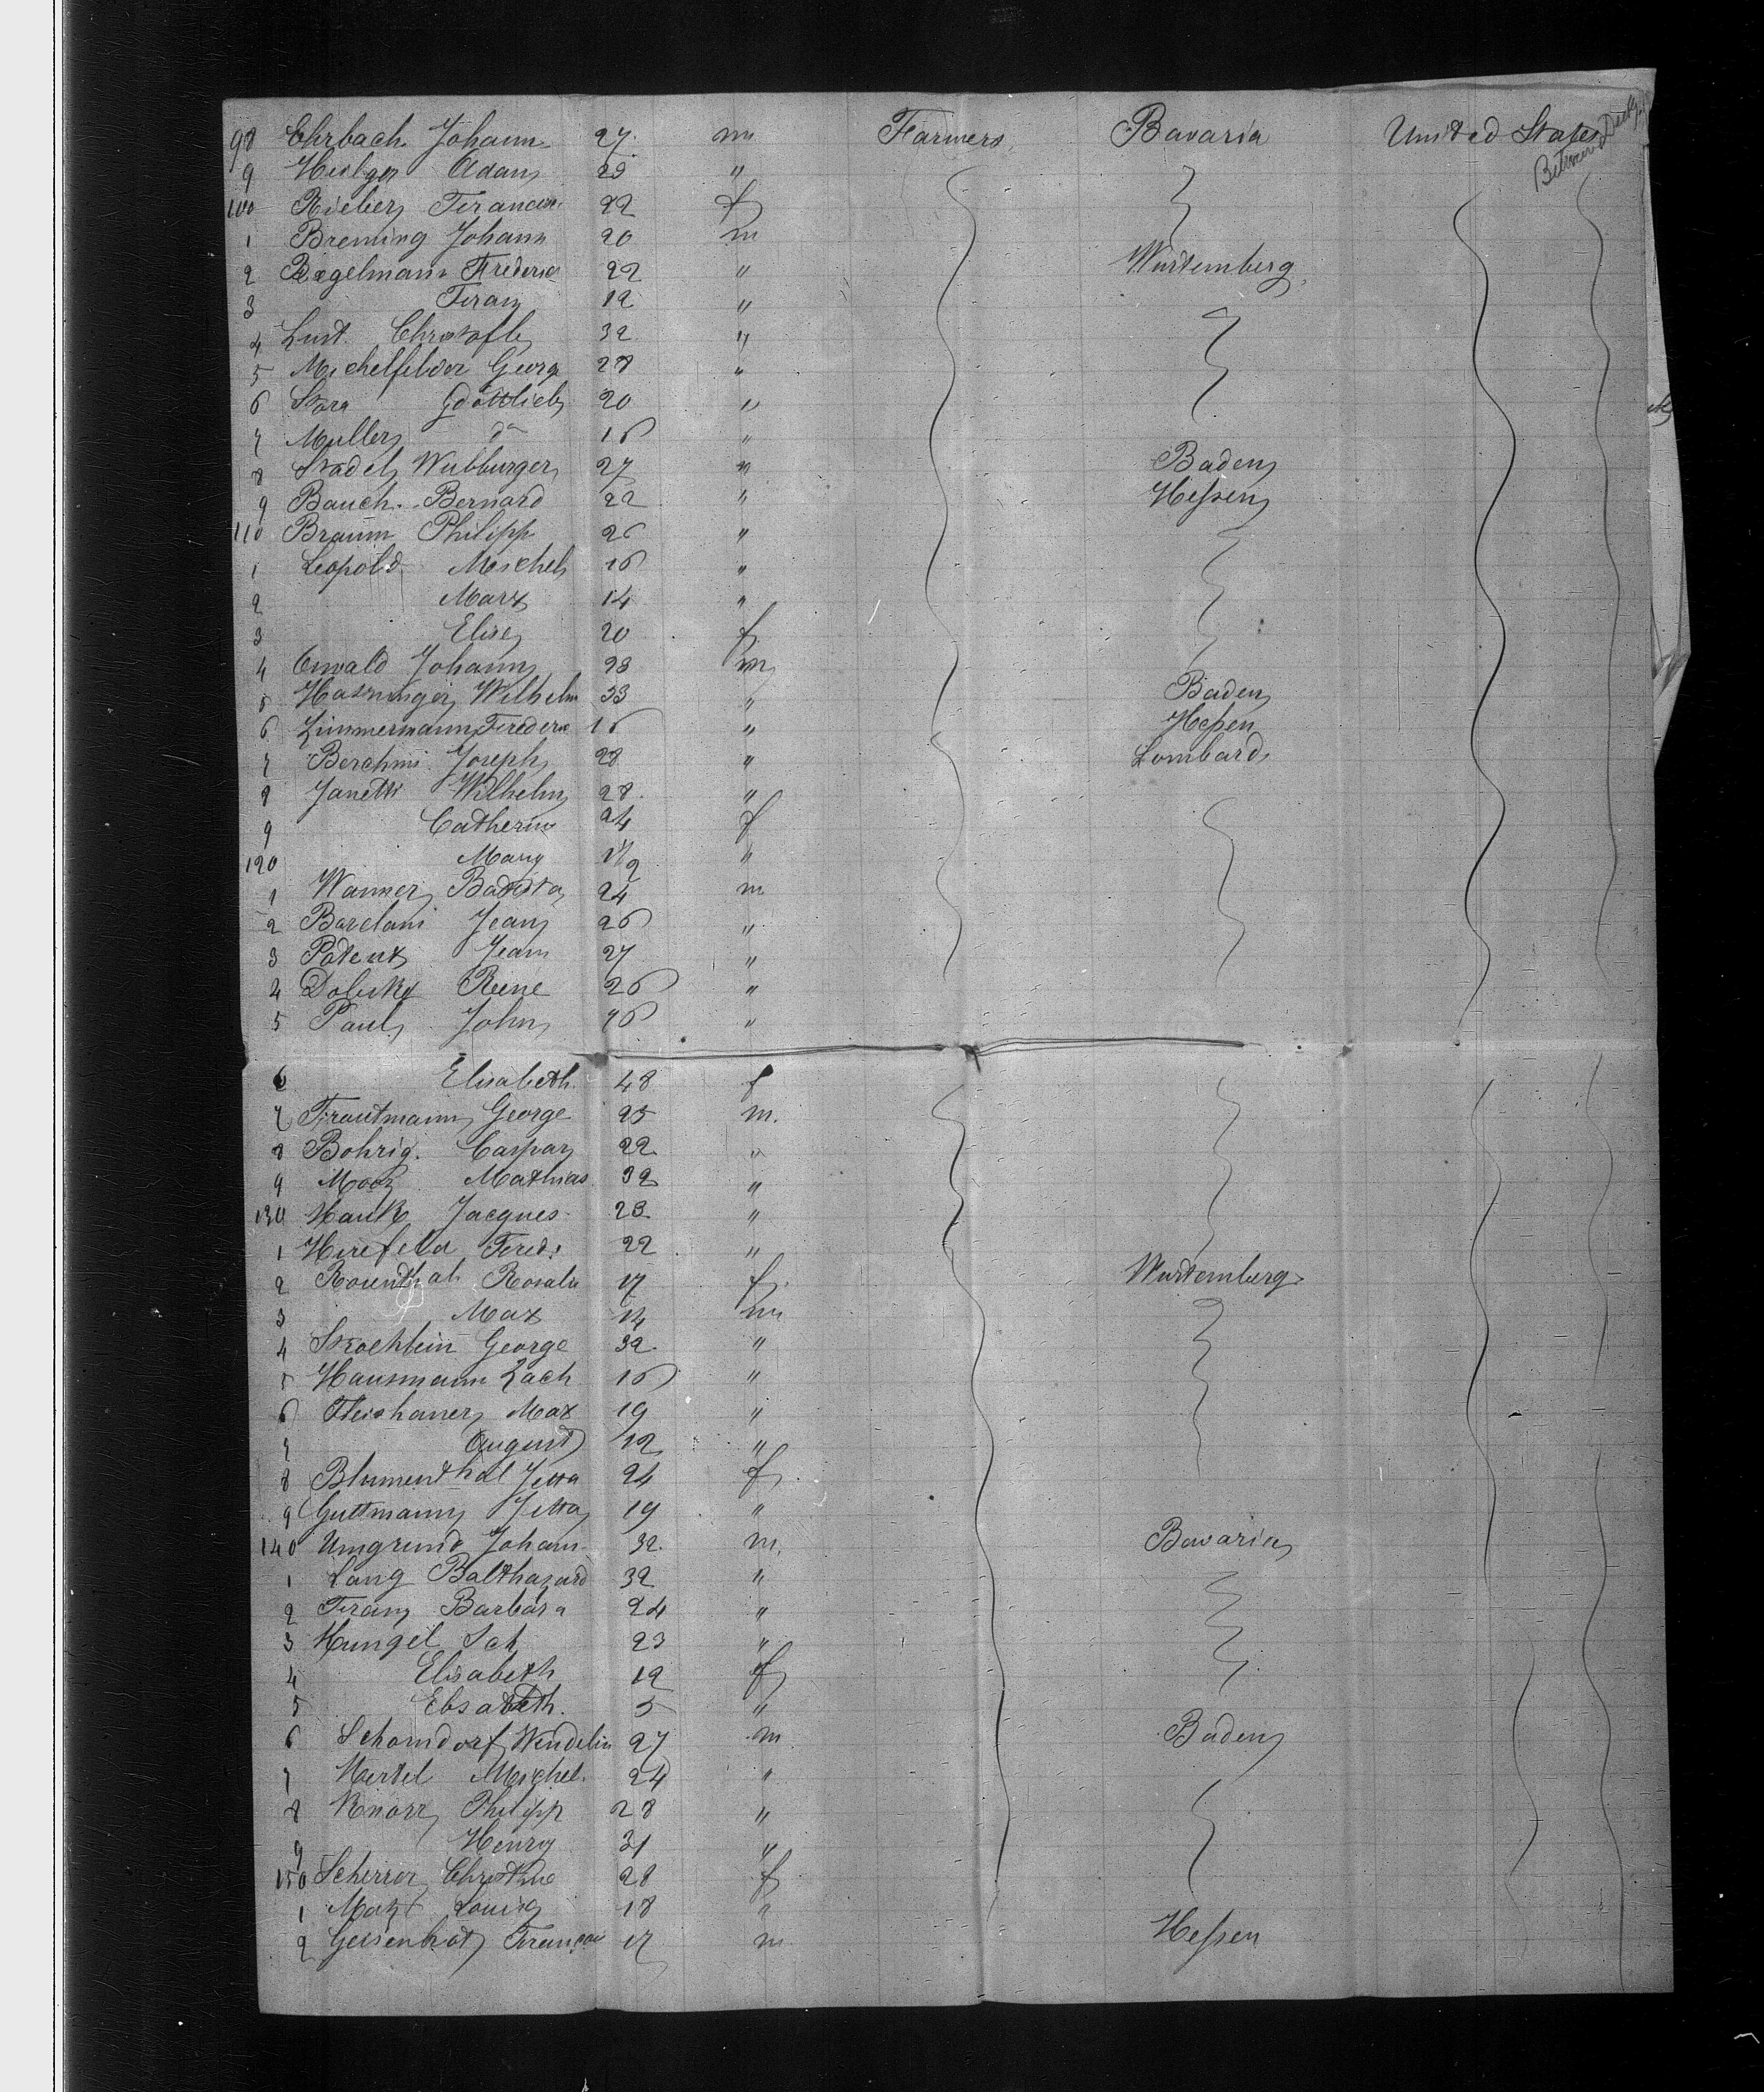 98 Ehrbach Johann 27. m Farmers Bavaria United States Between Decks
9 Adam 29 "
100 Rieber 22 f
1 Breming Johann 20 m
2 Bagelmann Frederic 22 " Wurtemberg
3 Franz 12 "
4 Lust 32 "
5 Michelfelder Georg 28 "
6 Gottlieb 20 "
7 Muller do 16 "
8 Stadel 27 " Baden
9 Bauch Bernard 22 " Hessen
110 Braum Philipp 26 "
1 Leopold Michel 16 "
2 Marx 14 "
3 Elise 20 f
4 Oswald Johann 28 m
5 Wilhelm 33 " Baden
6 Zimmermann Frederic 16 " Hessen
7 Berchmi Joseph 28 " Lombard
8 Janetti Wilhelm 28 "
9 Catherine 24 f
120 Mary 1 1/2 "
1 Wanner Batista 24 m
2 Barclani Jean 26 "
3 Patent Jean 27 "
4 Rene 26 "
5 Paul John 46 "
6 Elisabeth 48 f
7 Trautmann George 25 m.
8 Bohrig. Caspar 22 "
9 Mooz Mathias 32 "
130 Hauk Jacques 23 "
1 Hirefeld Fred: 22 "
2 Rosenthal Rosalie 17 f Wurtemberg
3 Max 14 m
4 Stroehlein George 32 "
5 Hausmann Zach 16 "
6 Fleishaner Max 19 "
7 August 12 "
8 Blumenthal Jetta 24 f
9 Guttmann Jetta 19 "
140 Umgrund Johann 32. m. Bavaria
1 Lang Balthasard 32 "
2 Franz Barbara 24 "
3 Hungel Sch 23 "
4 Elisabeth 12 f
5 Elisabeth. 5 "
6 Schomdorf Wendelin 27 m Baden
7 Hertel Michel. 24 "
8 Knorr Philipp 28 "
9 Henry 31 "
150 Scherrer Christine 28 f
1 Louis 18 "
2 Francois 17 m Hessen